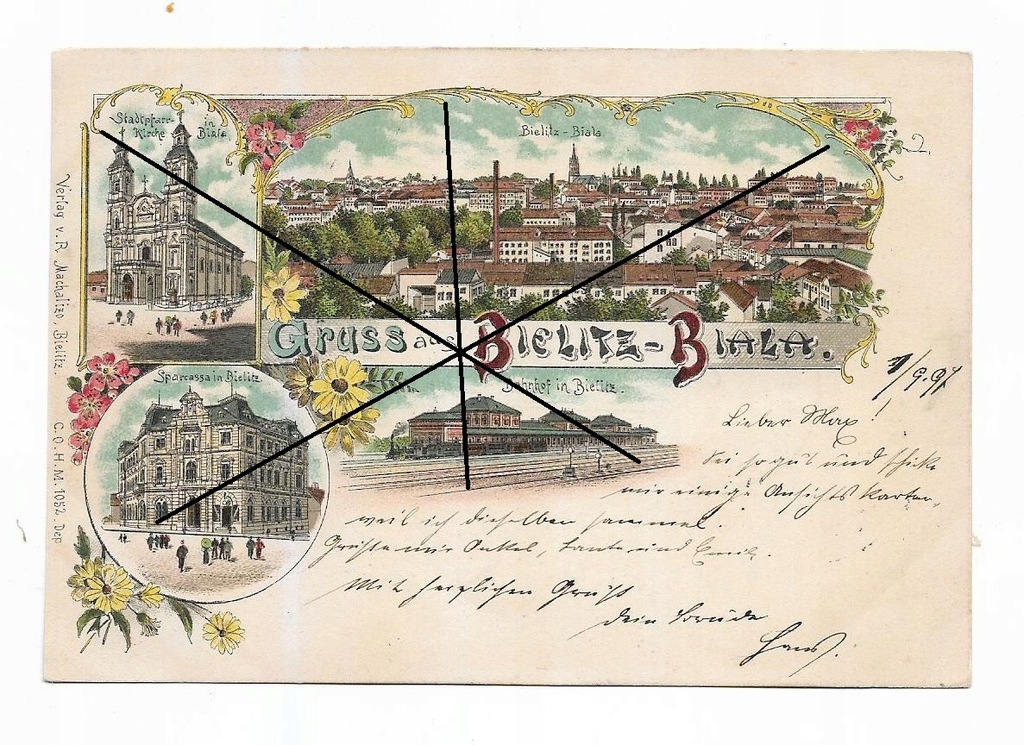 Stadtpfarr-
Kirche in
Biala
Bielitz-Biala
2.
Gruss aus Bielitz-Biala.
Sparcassa in Bielitz
Bahnhof in Bielitz.
Verlag v. R. Machalizo, Bielitz.
C. O. H. M. 1052. Dep
1/9.97
Lieber Max!
Sei so gut und schicke
mir einige Ansichtskarten,
weil ich dieselben sammel.
Grüße mir Onkel, Tante und Emil.
Mit herzlichen Gruß
dein
Hans.